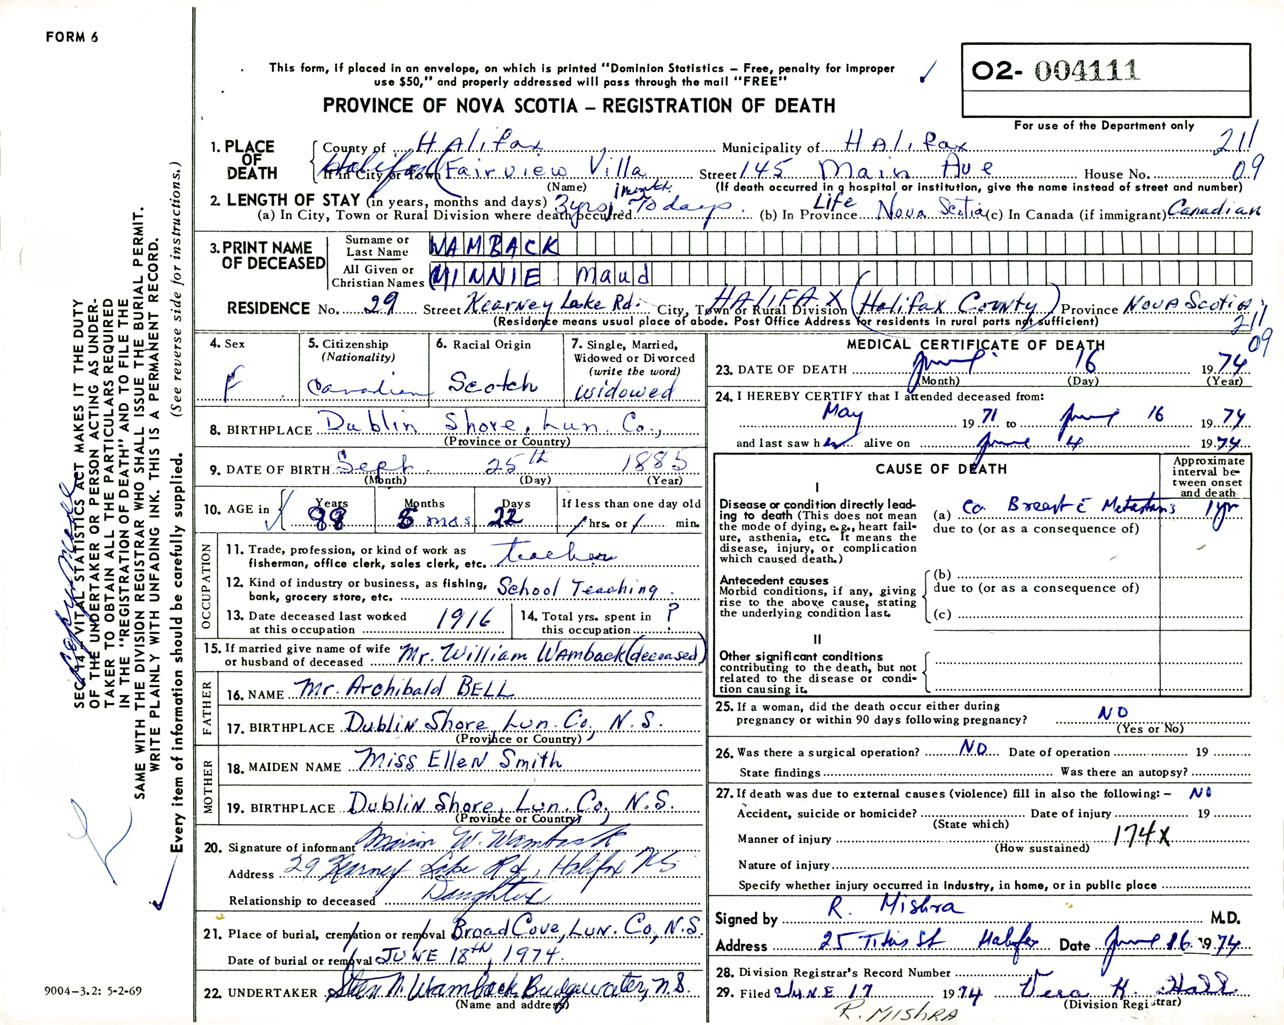 FORM 6
This form, if placed in an envelope, on which is printed "Dominion Statistics – Free, penalty for improper
use $50," and properly addressed will pass through the mail "FREE"
PROVINCE OF NOVA SCOTIA – REGISTRATION OF DEATH
O2- 004111
For use of the Department only
1. PLACE OF DEATH
County of Halifax Municipality of Halifax 211
Halifax If in City or Town Fairview Villa Street 145 Main Ave House No. 09
(Name) (If death occurred in a hospital or institution, give the name instead of street and number)
2. LENGTH OF STAY (in years, months and days) 1 month
(a) In City, Town or Rural Division where death occurred 3 yrs, days. (b) In Province Life Nova Scotia (c) In Canada (if immigrant) Canadian
3. PRINT NAME OF DECEASED
Surname or Last Name WAMBACK
All Given or Christian Names MINNIE Maud
RESIDENCE No. 29 Street Kearney Lake Rd. City, Town or Rural Division HALIFAX (Halifax County) Province NOVA SCOTIA
(Residence means usual place of abode. Post Office Address for residents in rural parts not sufficient)
211
09
4. Sex F
5. Citizenship (Nationality) Canadian
6. Racial Origin Scotch
7. Single, Married, Widowed or Divorced (write the word) Widowed
8. BIRTHPLACE Dublin Shore, Lun. Co.,
(Province or Country)
9. DATE OF BIRTH Sept. 25th 1885
(Month) (Day) (Year)
10. AGE in Years 88 Months 8 mos Days 22 If less than one day old / hrs. or / min.
OCCUPATION
11. Trade, profession, or kind of work as fisherman, office clerk, sales clerk, etc. teacher
12. Kind of industry or business, as fishing, bank, grocery store, etc. School Teaching.
13. Date deceased last worked at this occupation 1916
14. Total yrs. spent in this occupation ?
15. If married give name of wife or husband of deceased Mr. William Wamback (deceased)
FATHER
16. NAME Mr. Archibald BELL
17. BIRTHPLACE Dublin Shore, Lun. Co, N.S.
(Province or Country)
MOTHER
18. MAIDEN NAME Miss Ellen Smith
19. BIRTHPLACE Dublin Shore, Lun. Co, N.S.
(Province or Country)
20. Signature of informant W. Wamback
Address 29 Kearney Lake Rd, Halifax NS
Relationship to deceased Daughter
21. Place of burial, cremation or removal Broad Cove, Lun. Co, N.S.
Date of burial or removal JUNE 18TH, 1974
22. UNDERTAKER M. Wamback Bridgewater, N.S.
(Name and address)
MEDICAL CERTIFICATE OF DEATH
23. DATE OF DEATH June 16 1974
(Month) (Day) (Year)
24. I HEREBY CERTIFY that I attended deceased from:
May 1971 to June 16 1974
and last saw her alive on June 4 1974
CAUSE OF DEATH
Approximate interval between onset and death
I
Disease or condition directly leading to death (This does not mean the mode of dying, e.g., heart failure, asthenia, etc. It means the disease, injury, or complication which caused death.)
(a) Ca Breast c̄ Metastasis 1 yr
due to (or as a consequence of)
Antecedent causes
Morbid conditions, if any, giving rise to the above cause, stating the underlying condition last.
(b)
due to (or as a consequence of)
(c)
II
Other significant conditions
contributing to the death, but not related to the disease or condition causing it.
25. If a woman, did the death occur either during pregnancy or within 90 days following pregnancy? NO
(Yes or No)
26. Was there a surgical operation? NO Date of operation 19
State findings Was there an autopsy?
27. If death was due to external causes (violence) fill in also the following: – NO
Accident, suicide or homicide? Date of injury 19
(State which)
Manner of injury 174X
(How sustained)
Nature of injury
Specify whether injury occurred in industry, in home, or in public place
Signed by R. Mishra M.D.
Address 25 Titus St Halifax Date June 16 1974
28. Division Registrar's Record Number
29. Filed JUNE 17 1974 Vera K. Hall
(Division Registrar)
R. MISHRA
SEC. 14 – VITAL STATISTICS ACT MAKES IT THE DUTY
OF THE UNDERTAKER OR PERSON ACTING AS UNDER-
TAKER TO OBTAIN ALL THE PARTICULARS REQUIRED
IN THE "REGISTRATION OF DEATH" AND TO FILE THE
SAME WITH THE DIVISION REGISTRAR WHO SHALL ISSUE THE BURIAL PERMIT.
WRITE PLAINLY WITH UNFADING INK. THIS IS A PERMANENT RECORD.
Every item of information should be carefully supplied. (See reverse side for instructions.)
9004-3.2: 5-2-69